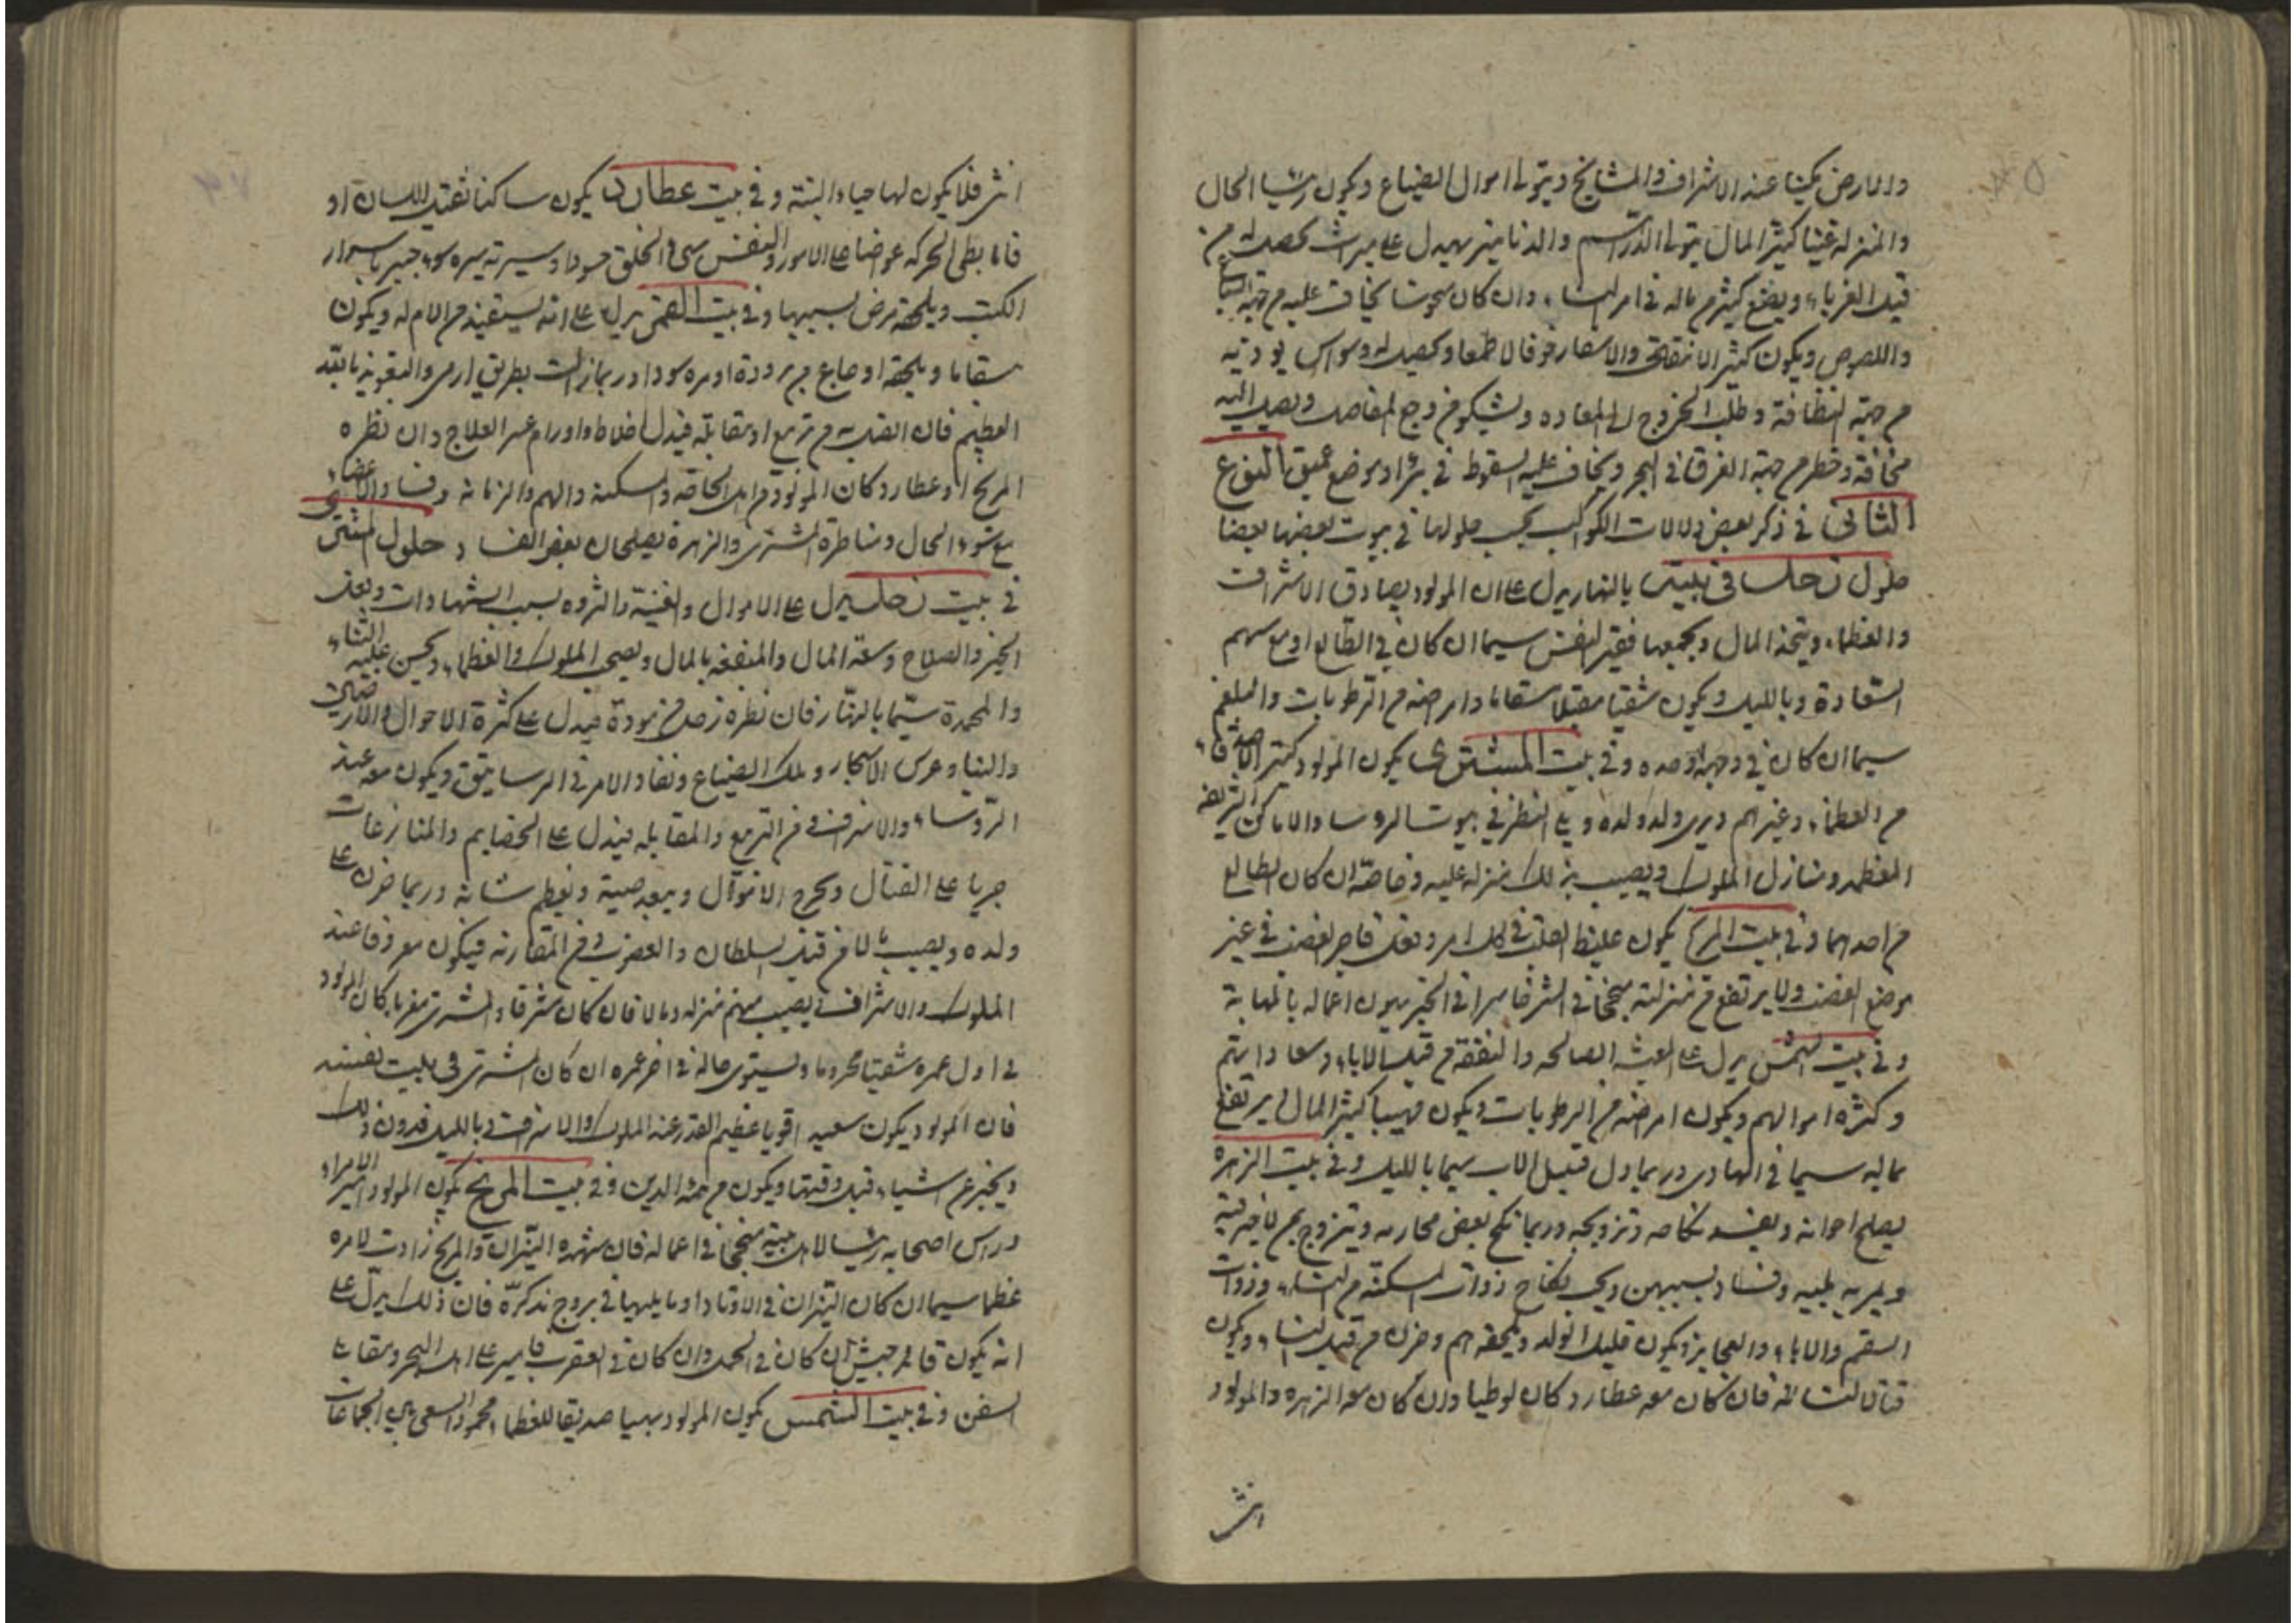 والارض مكينا عند الاشراف والمشايخ ويتولى اموال الضياع ويكون رئسيا الحال
والمنزله غنيا كثير المال يتولى الدراهم والدنانير يدل على ميراث يحصل له من
قبل الغرباء ويضيع كثير من ماله في امر النساء وان كان منحوسا يخاف عليه من جهة السباع
واللصوص ويكون كثير الانتقال والاسفار خوفا لا طمعا ويحصل له وسواس يوديه
من جهة النظافة وطلب الخروج الى المعاده ويشكو من وجع المفاصل ويصل اليه
مخافة وخطر من جهة الغرق في البحر ويخاف عليه السقوط في بئر او موضع عميق النوع
الثاني في ذكر بعض دلالات الكواكب بحسب حلولها في بيوت بعضها بعضا
حلول زحل في بيته بالنهار يدل على ان المولود يصادق الاشراف
والعظماء ويتخذ المال ويجمعها فقير النفس سيما ان كان في الطالع او مع سهم
السعادة وبالليل ويكون شقيا مقبلا سقاما وامراضه من الرطوبات والبلغم
سيما ان كان في وجهه او حده وفي بيت المشتري يكون المولود كثير الاصدقاء
من العظماء وغيرهم ويرى ولد ولده ويلي النظر في بيوت الروسا والاماكن الشريفه
المعظمه ومنازل الملوك ويصيب بذلك منزله عليه وخاصة ان كان الطالع
من احدهما وفي بيت المريخ يكون غليظ القلب في كل امر وبعد فاجر الغضب في غير
موضع الغضب ولا يرتفع من منزلته منجحا في الشر خاسرا في الخير يهون اعماله بالمهابة
وفي بيت الشمس يدل على العيشه الصالحه والنفقه من قبل الاباء وسعادتهم
وكثره اموالهم ويكون امراضه من الرطوبات ويكون مهيبا كثير المال يرتفع
ماليه سيما في الهادي وربما دل قبيل الاب سيما بالليل وفي بيت الزهره
يصلح اخوانه ويفسد نكاحه وتزويجه وربما نكح بعض محارمه ويتزوج بمن لا خير فيه
ويمر به بليه وفساد بسببهن ويحب نكاح ذوات المسكنة من النساء وذوات
السقم والاباء والعجايز ويكون قليل الولد ويلحقه هم وحزن من قبل النساء ويكون
فتانا للنساء له فان كان معه عطارد كان لوطيا وان كان معه الزهره والمولود
انثى
انثى فلا يكون لها حياء البتة وفي بيت عطارد يكون ساكنا ثقيل اللسان او
فاما بطى الحركه غواضا على الامور والنفس سي الخلق حسودا وسيرته سيره سوء خبير باسرار
الكتب ويلحقه مرض بسببها وفي بيت القمر يدل على انه يستفيد من الام له ويكون
سقاما ويلحقه اوجاع من برودة او مره سودا وربما زالت بطريق ارمى والتعويذ بالله
العظيم فان اتصل به من تربيع او مقابله فيدل اخلاط واورام عسر العلاج وان نظره
المريخ او عطارد كان المولود من اهل الحاقه والسكنة والهم والزمانه وفساد الاعضاء
مع سوء الحال ومناظرة المشتري والزهرة يصلحان بعض الفساد حلول المشتري
في بيت زحل يدل على الاموال والغنية والثروه بسبب الشهادات وبعد
الخير والصلاح وسعة المال والمنفعه بالمال ويصحب الملوك والعظماء ويحسن عليه الثناء
والمحمدة سيما بالنهار فان نظره زحل من مودة فيدل على كثرة الاحوال والاراضي
والبنا وغرس الاشجار وملك الضياع ونفاد الامر في الرساتيق ويكون معه عند
الروساء والاشراف ومن التربيع والمقابله فيدل على الخصايم والمنازعات
جريا على القتال ويخرج الاموال ويبعد صيته ويعظم شانه وربما حزن على
ولده ويصيب بالا من قبل السلطان والغضوب ومن المقارنه فيكون معروفا عند
الملوك والاشراف يصيب منهم منزله ومالا فان كان شرقا والمشتري مغربا كان المولود
في اول عمره شقيا محروما ويستوي حاله في اخر عمره ان كان المشتري في بيت نفسه
فان المولود يكون سعيدا قويا عظيم القدر عند الملوك والاشراف وبالليل فدون ذلك
ويخبر عن اشياء قبل وقتها ويكون من ائمة الدين وفي بيت المريخ يكون المولود امير الامراء
وراس اصحابه رئيسا لاهل بيته منجحا في اعماله فان شهده النيران والمريخ زادت لامره
عظما سيما ان كان النيران في الاوتاد او ما يليها في بروج مذكره فان ذلك يدل على
انه يكون قائد جيش ان كان في الحمل وان كان في العقرب فاميرا على اهل البحر ومقابله
السفن وفي بيت الشمس يكون المولود مهيبا صديقا للعظماء محمود السعي يلي الجماعات